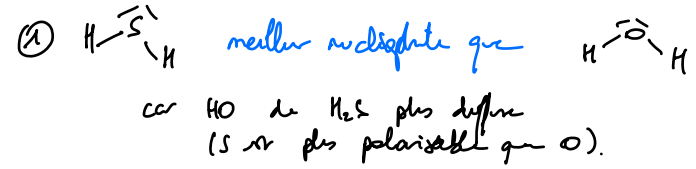 ① H S H meilleur nucléophile que H O H
car HO de H₂S plus diffuse
(S est plus polarisable que O).